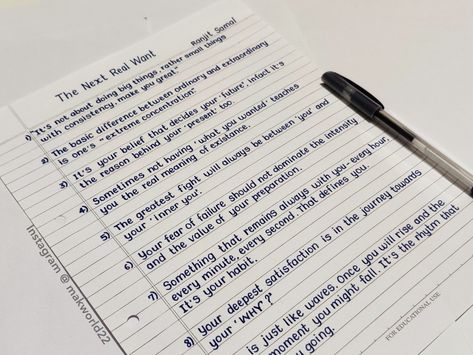 The Next Real Want
Ranjit Samal
1) It's not about doing big things, rather small things
with consistency, make you great."
2) The basic difference between ordinary and extraordinary
is one's "extreme concentration".
3) It's your belief that decides your 'future', infact it's
the reason behind your 'present' too.
4) Sometimes not having 'what you wanted' teaches
you the real meaning of existance.
5) The greatest fight will always be between 'you' and
your 'inner you'.
6) Your fear of failure should not dominate the intensity
and the value of your preparation.
7) Something that remains always with you - every hour,
every minute, every second. That defines you.
It's your habit.
8) Your deepest satisfaction is in the journey towards
your 'WHY?'
is just like waves. Once you will rise and the
moment you might fall. It's the rhythm that
you going.
FOR EDUCATIONAL USE
Instagram @ makworld22